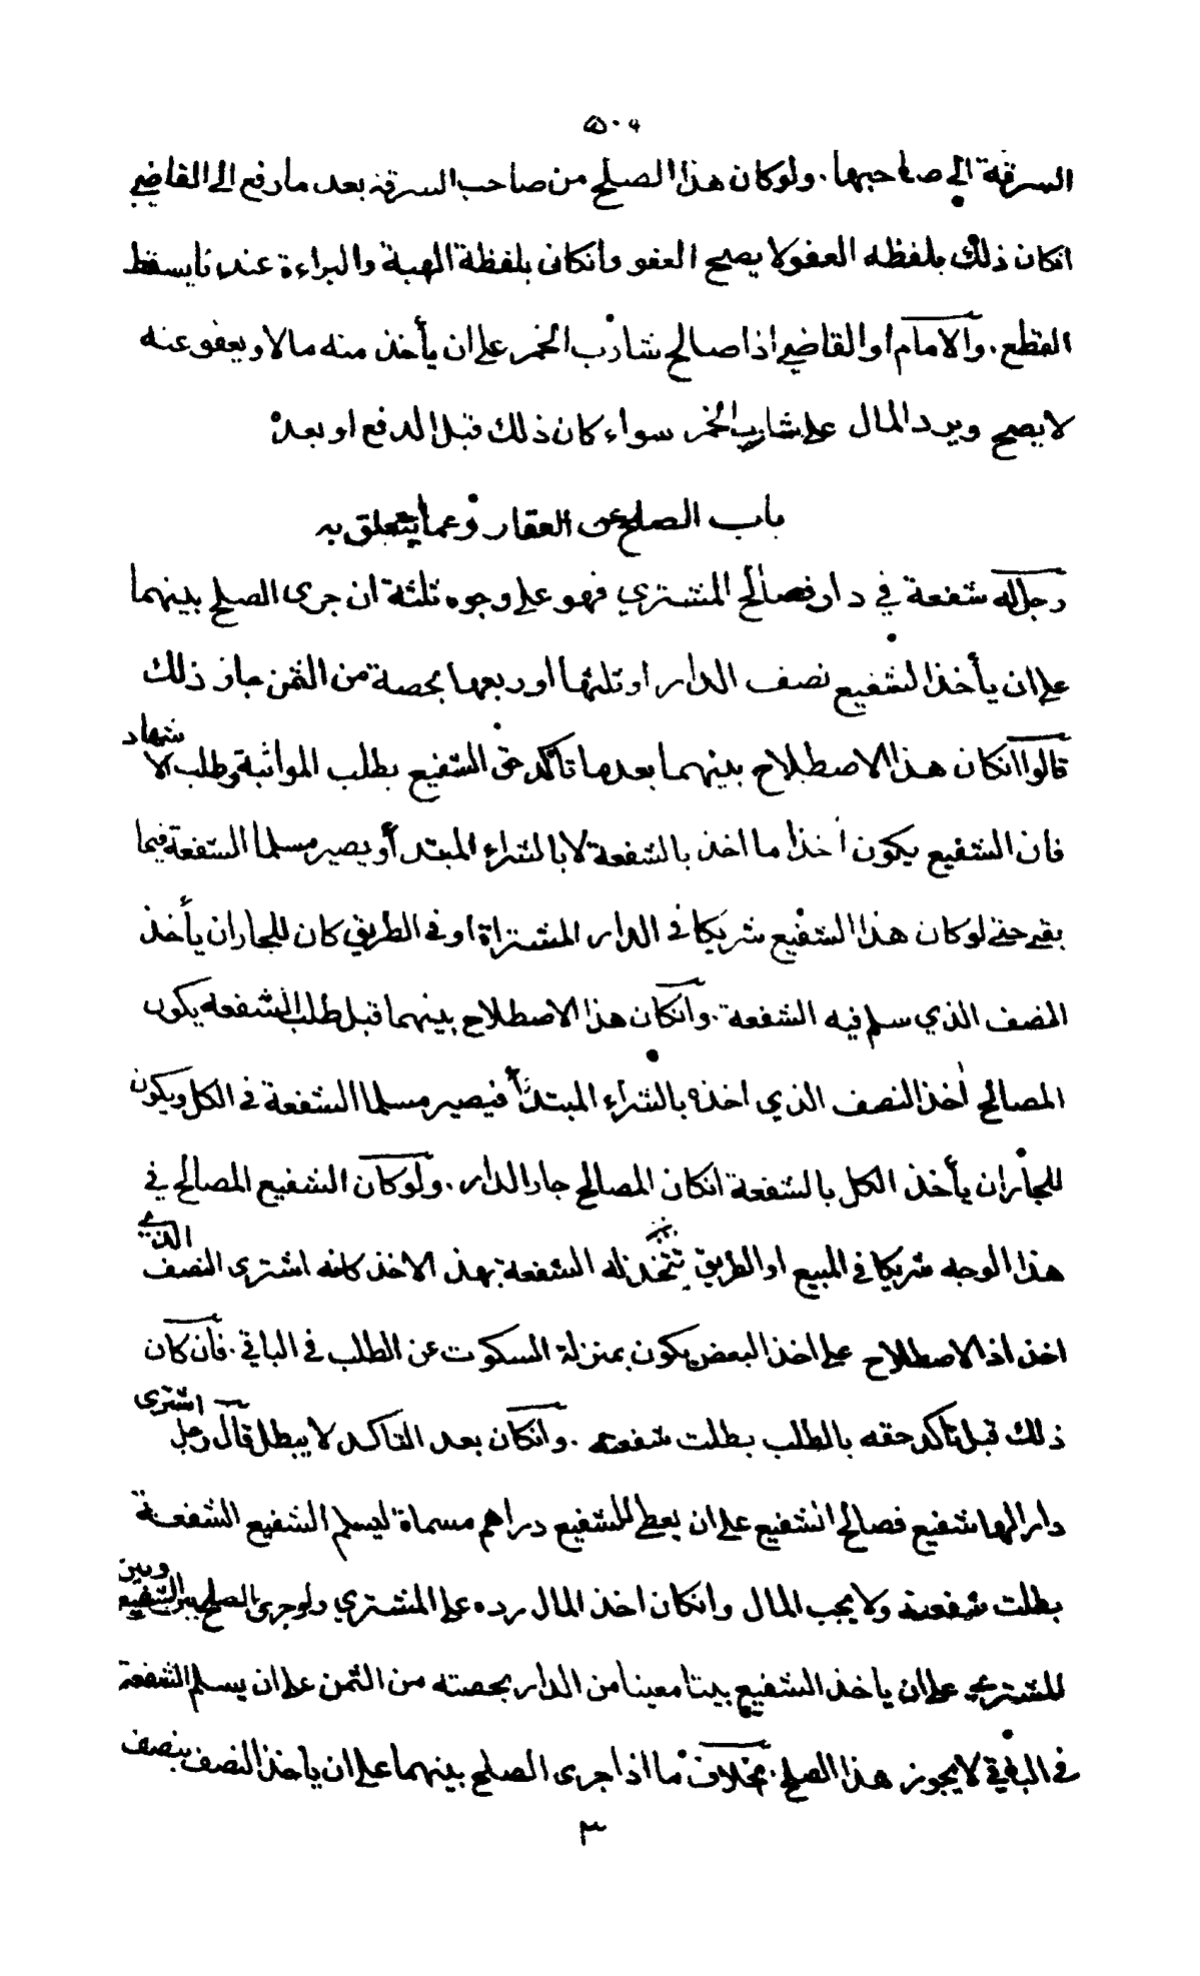 ٥٠٦
السرقة الى صاحبها . ولو كان هذا الصلح من صاحب السرقة بعد ما رفع الى القاضي
انكان ذلك بلفظه العفو لا يصح العفو وانكان بلفظة الهبة والبراءة عندنا يسقط
القطع . والامام او القاضي اذا صالح شارب الخمر على ان يأخذ منه مالا ويعفو عنه
لا يصح ويرد المال على شارب الخمر سواء كان ذلك قبل الدفع او بعده
باب الصلح عن العقار وعما يتعلق به
رجل له شفعة في دار فصالح المشتري فهو على وجوه ثلثة ان جرى الصلح بينهما
على ان يأخذ الشفيع نصف الدار او ثلثها او ربعها بحصة من الثمن جاز ذلك
قالوا انكان هذا الاصطلاح بينهما بعد ما تأكد حق الشفيع بطلب المواثبة وطلب الاشهاد
فان الشفيع يكون اخذا ما اخذ بالشفعة لا بالشراء المبتدأ ويصير مسلما الشفعة فيما
بقي حتى لو كان هذا الشفيع شريكا في الدار المشتراة او في الطريق كان للجار ان يأخذ
النصف الذي سلم فيه الشفعة . وانكان هذا الاصطلاح بينهما قبل طلب الشفعة يكون
المصالح اخذ النصف الذي اخذه بالشراء المبتدأ فيصير مسلما الشفعة في الكل ويكون
للجار ان يأخذ الكل بالشفعة انكان المصالح جار الدار . ولو كان الشفيع المصالح في
هذا الوجه شريكا في المبيع او الطريق تتخذ له الشفعة بهذ الاخذ كانه اشترى النصف الذي
اخذ اذ الاصطلاح على اخذ البعض يكون بمنزلة السكوت عن الطلب في الباقي . فان كان
ذلك قبل تأكد حقه بالطلب بطلت شفعته . وانكان بعد التاكد لا يبطل قال رجل اشترى
دار الها شفيع فصالح الشفيع على ان يعطى للشفيع دراهم مسماة ليسلم الشفيع الشفعة
بطلت شفعته ولا يجب المال وانكان اخذ المال رده على المشتري ولو جرى الصلح بين الشفيع وبين
المشتري على ان ياخذ الشفيع بيتا معينا من الدار بحصته من الثمن على ان يسلم الشفعة
في الباقي لا يجوز هذا الصلح . بخلاف ما اذا جرى الصلح بينهما على ان ياخذ النصف بنصف
٣